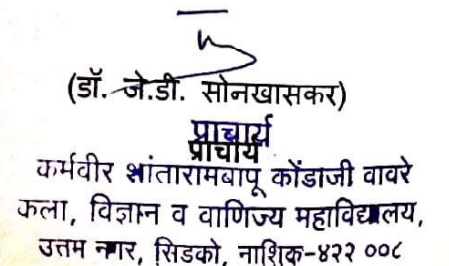 (डॉ. जे.डी. सोनखासकर)
प्राचार्य
प्राचार्य
कर्मवीर शांतारामबापू कोंडाजी वावरे
कला, विज्ञान व वाणिज्य महाविद्यालय,
उत्तम नगर, सिडको, नाशिक-४२२ ००८